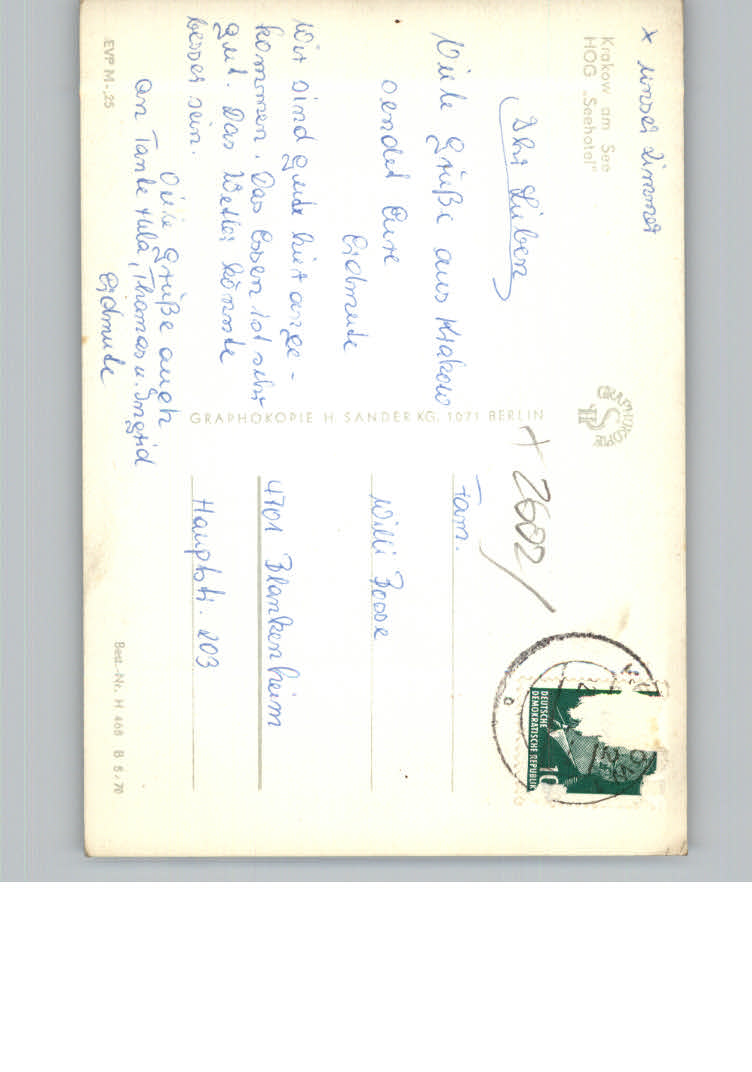 x unser Zimmer
Krakow am See
HOG „Seehotel"
Ihr Lieben
Viele Grüße aus Krakow
sendet Eure
Erdmute
Wir sind gut hier ange-
kommen. Das Essen ist sehr
gut. Das Wetter könnte
besser sein.
Viele Grüße auch
an Tante Hula, Thomas u. Ingrid
Erdmute
EVP M -,25
GRAPHOKOPIE H SANDER KG, 1071 BERLIN
GRAPHOKOPIE
HS
+ 2602
DEUTSCHE
DEMOKRATISCHE REPUBLIK
10
Fam.
Willi Bosse
4701 Blankenheim
Hauptstr. 203
Best.-Nr. H 468 B 5/70